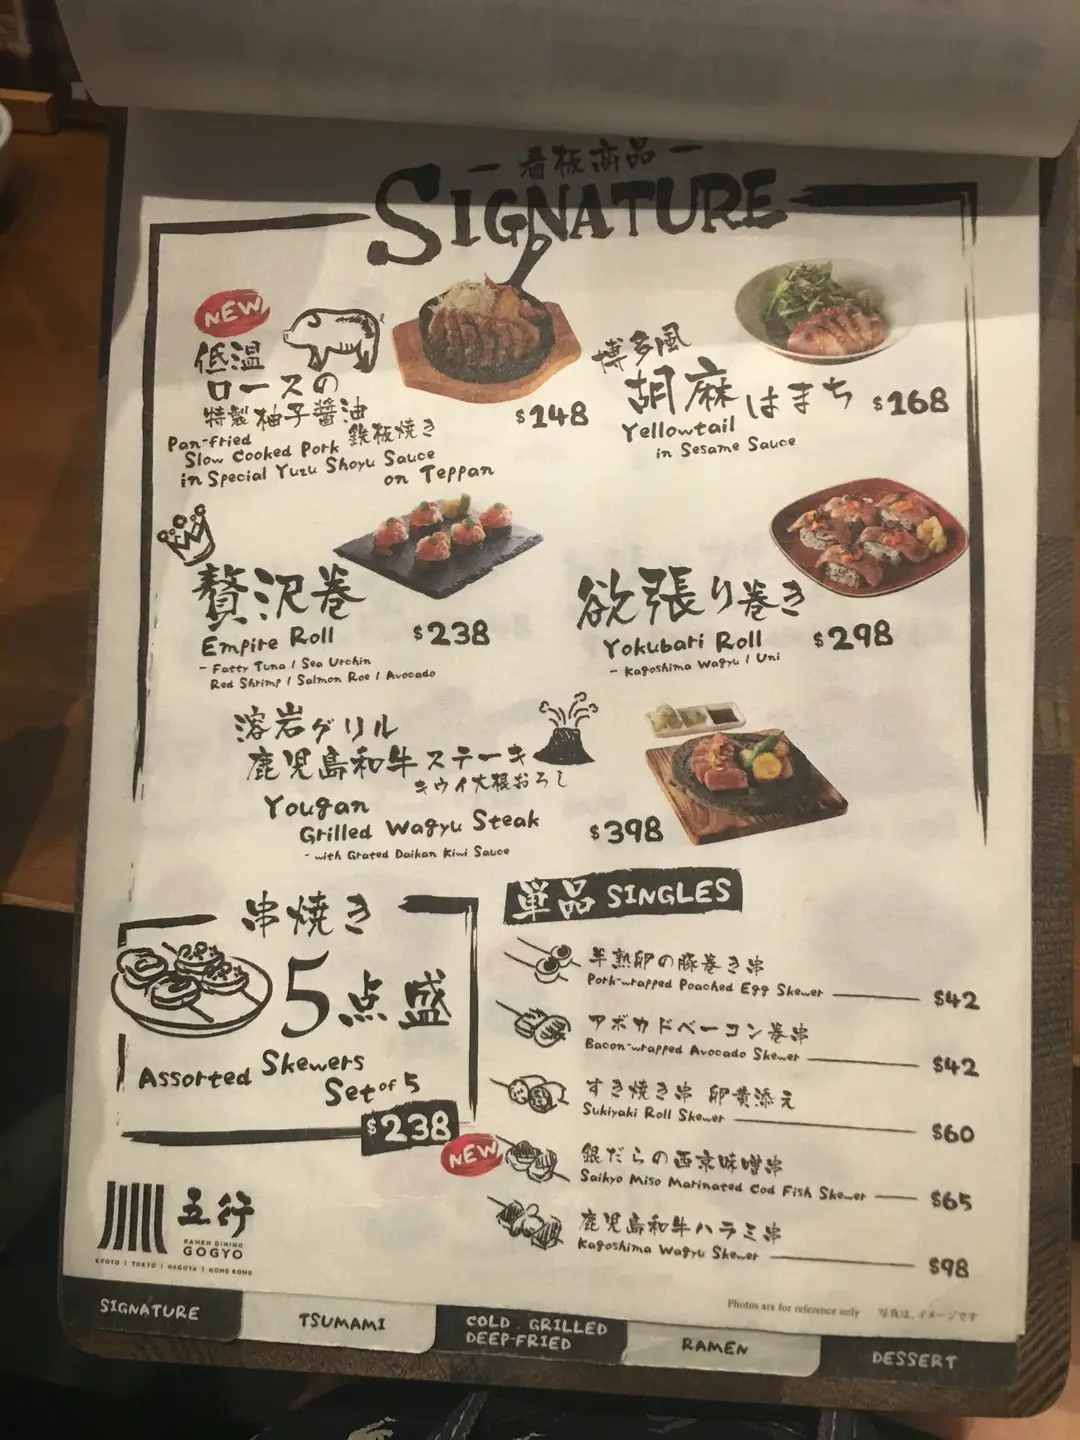 看板商品
SIGNATURE
NEW
低温
ロースの
特製柚子醤油
鉄板焼き
Pan-fried
Slow Cooked Pork
in Special Yuzu Shoyu Sauce
on Teppan
$148
博多風
胡麻はまち
$168
Yellowtail
in Sesame Sauce
贅沢巻
Empire Roll
$238
- Fatty Tuna / Sea Urchin
Red Shrimp / Salmon Roe / Avocado
欲張り巻き
Yokubari Roll
$298
- Kagoshima Wagyu / Uni
溶岩グリル
鹿児島和牛ステーキ
キウイ大根おろし
Yougan
Grilled Wagyu Steak
$398
- with Grated Daikan Kiwi Sauce
串焼き
5点盛
Assorted Skewers
Set of 5
$238
単品 SINGLES
半熟卵の豚巻き串
Pork-wrapped Poached Egg Skewer $42
アボカドベーコン巻串
Bacon-wrapped Avocado Skewer $42
すき焼き串 卵黄添え
Sukiyaki Roll Skewer $60
NEW
銀だらの西京味噌串
Saikyo Miso Marinated Cod Fish Skewer $65
鹿児島和牛ハラミ串
Kagoshima Wagyu Skewer $98
五行
RAMEN DINING
GOGYO
KYOTO | TOKYO | NAGOYA | HONG KONG
Photos are for reference only 写真は、イメージです
SIGNATURE
TSUMAMI
COLD . GRILLED
DEEP-FRIED
RAMEN
DESSERT